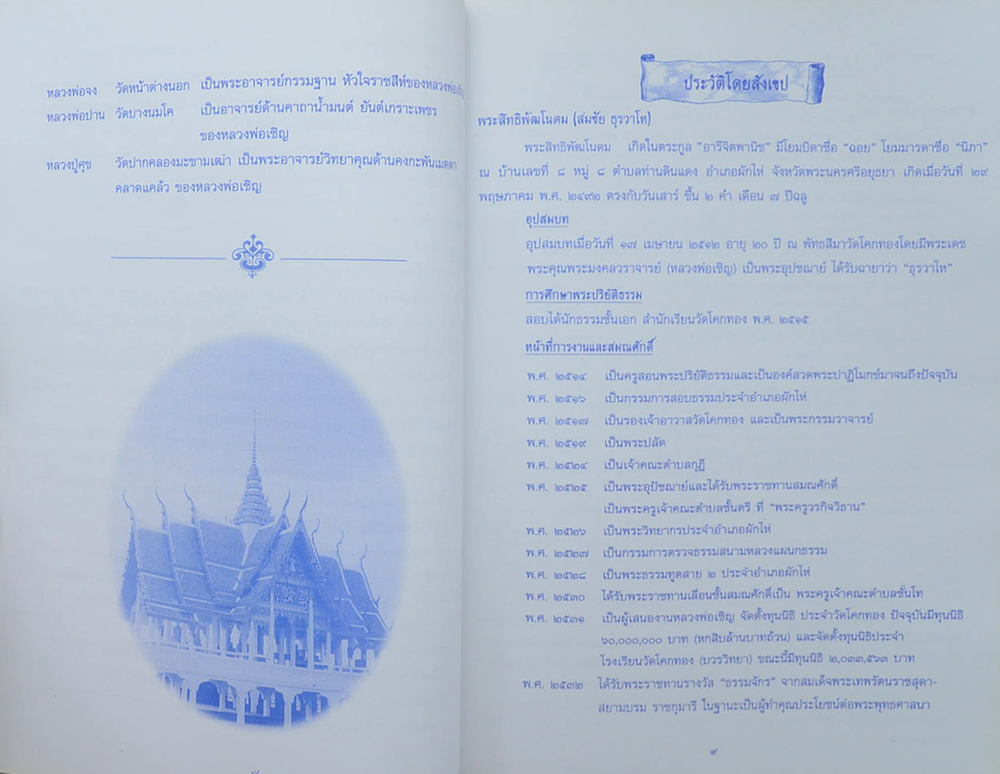 หลวงพ่อจง วัดหน้าต่างนอก เป็นพระอาจารย์กรรมฐาน หัวใจราชสีห์ของหลวงพ่อเชิญ
หลวงพ่อปาน วัดบางนมโค เป็นอาจารย์ด้านคาถาน้ำมนต์ ยันต์เกราะเพชร
ของหลวงพ่อเชิญ
หลวงปู่ศุข วัดปากคลองมะขามเฒ่า เป็นพระอาจารย์วิทยาคุณด้านคงกะพันเมตตา
คลาดแคล้ว ของหลวงพ่อเชิญ
๘
ประวัติโดยสังเขป
พระสิทธิพัฒโนดม (สมชัย ธุรวาโห)
พระสิทธิพัฒโนดม เกิดในตระกูล "อารีจิตพานิช" มีโยมบิดาชื่อ "ฉอย" โยมมารดาชื่อ "นิภา"
ณ บ้านเลขที่ ๘ หมู่ ๘ ตำบลท่าดินแดง อำเภอผักไห่ จังหวัดพระนครศรีอยุธยา เกิดเมื่อวันที่ ๒๙
พฤษภาคม พ.ศ. ๒๔๙๒ ตรงกับวันเสาร์ ขึ้น ๒ ค่ำ เดือน ๗ ปีฉลู
อุปสมบท
อุปสมบทเมื่อวันที่ ๑๗ เมษายน ๒๕๑๒ อายุ ๒๐ ปี ณ พัทธสีมาวัดโคกทองโดยมีพระเดช
พระคุณพระมงคลวราจารย์ (หลวงพ่อเชิญ) เป็นพระอุปัชฌาย์ ได้รับฉายาว่า "ธุรวาโห"
การศึกษาพระปริยัติธรรม
สอบได้นักธรรมชั้นเอก สำนักเรียนวัดโคกทอง พ.ศ. ๒๕๑๕
หน้าที่การงานและสมณศักดิ์
พ.ศ. ๒๕๑๔ เป็นครูสอนพระปริยัติธรรมและเป็นองค์สวดพระปาฏิโมกข์มาจนถึงปัจจุบัน
พ.ศ. ๒๕๑๖ เป็นกรรมการสอบธรรมประจำอำเภอผักไห่
พ.ศ. ๒๕๑๗ เป็นรองเจ้าอาวาสวัดโคกทอง และเป็นพระกรรมวาจารย์
พ.ศ. ๒๕๑๙ เป็นพระปลัด
พ.ศ. ๒๕๒๔ เป็นเจ้าคณะตำบลกุฎี
พ.ศ. ๒๕๒๕ เป็นพระอุปัชฌาย์และได้รับพระราชทานสมณศักดิ์
เป็นพระครูเจ้าคณะตำบลชั้นตรี ที่ "พระครูวรกิจวิธาน"
พ.ศ. ๒๕๒๖ เป็นพระวิทยากรประจำอำเภอผักไห่
พ.ศ. ๒๕๒๗ เป็นกรรมการตรวจธรรมสนามหลวงแผนกธรรม
พ.ศ. ๒๕๒๘ เป็นพระธรรมทูตสาย ๒ ประจำอำเภอผักไห่
พ.ศ. ๒๕๓๐ ได้รับพระราชทานเลื่อนชั้นสมณศักดิ์เป็น พระครูเจ้าคณะตำบลชั้นโท
พ.ศ. ๒๕๓๑ เป็นผู้เสนองานหลวงพ่อเชิญ จัดตั้งทุนนิธิ ประจำวัดโคกทอง ปัจจุบันมีทุนนิธิ
๖๐,๐๐๐,๐๐๐ บาท (หกสิบล้านบาทถ้วน) และจัดตั้งทุนนิธิประจำ
โรงเรียนวัดโคกทอง (บวรวิทยา) ขณะนี้มีทุนนิธิ ๒,๐๓๓,๕๖๓ บาท
พ.ศ. ๒๕๓๒ ได้รับพระราชทานรางวัล "ธรรมจักร" จากสมเด็จพระเทพรัตนราชสุดา-
สยามบรม ราชกุมารี ในฐานะเป็นผู้ทำคุณประโยชน์ต่อพระพุทธศาสนา
๙